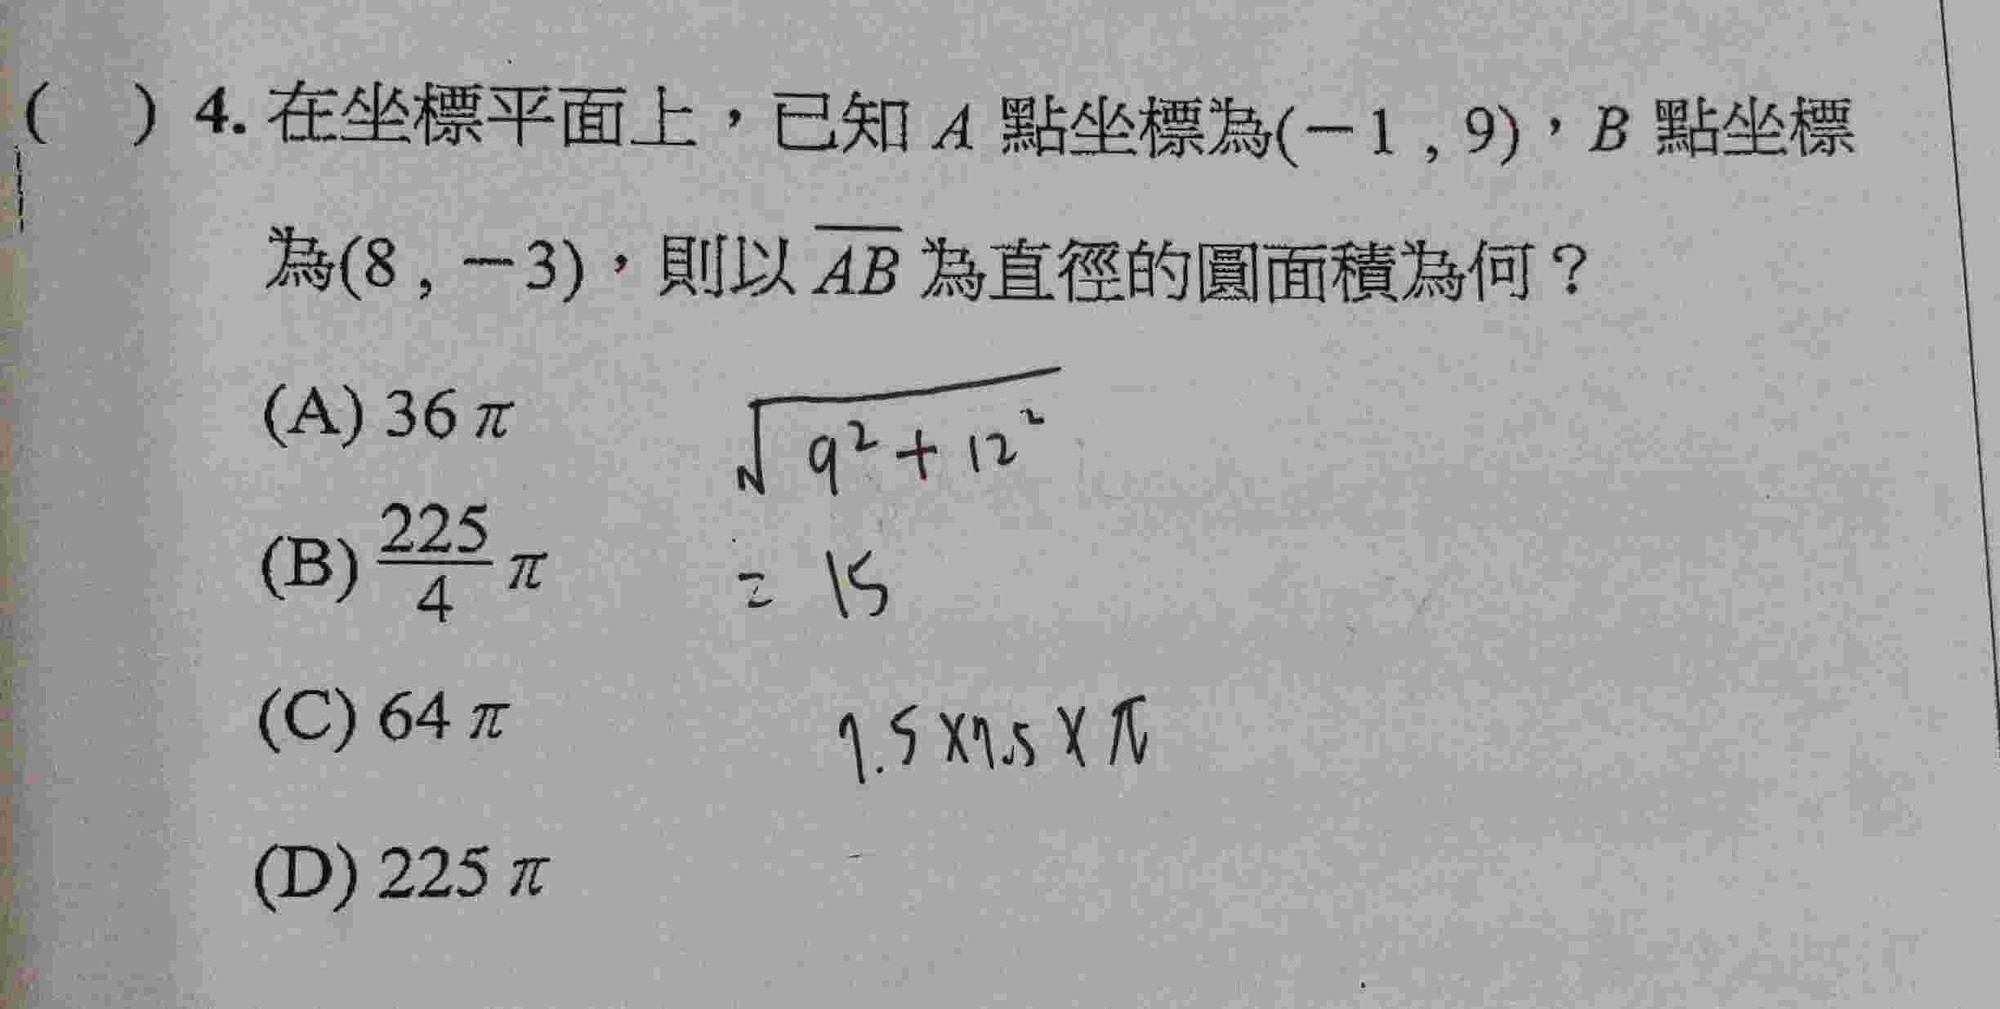 ( ) 4. 在坐標平面上，已知 A 點坐標為(－1 , 9)，B 點坐標
為(8 , －3)，則以 \overline{AB} 為直徑的圓面積為何？
(A) 36 π
\sqrt{9² + 12²}
(B) \frac{225}{4} π
= 15
(C) 64 π
7.5 × 7.5 × π
(D) 225 π